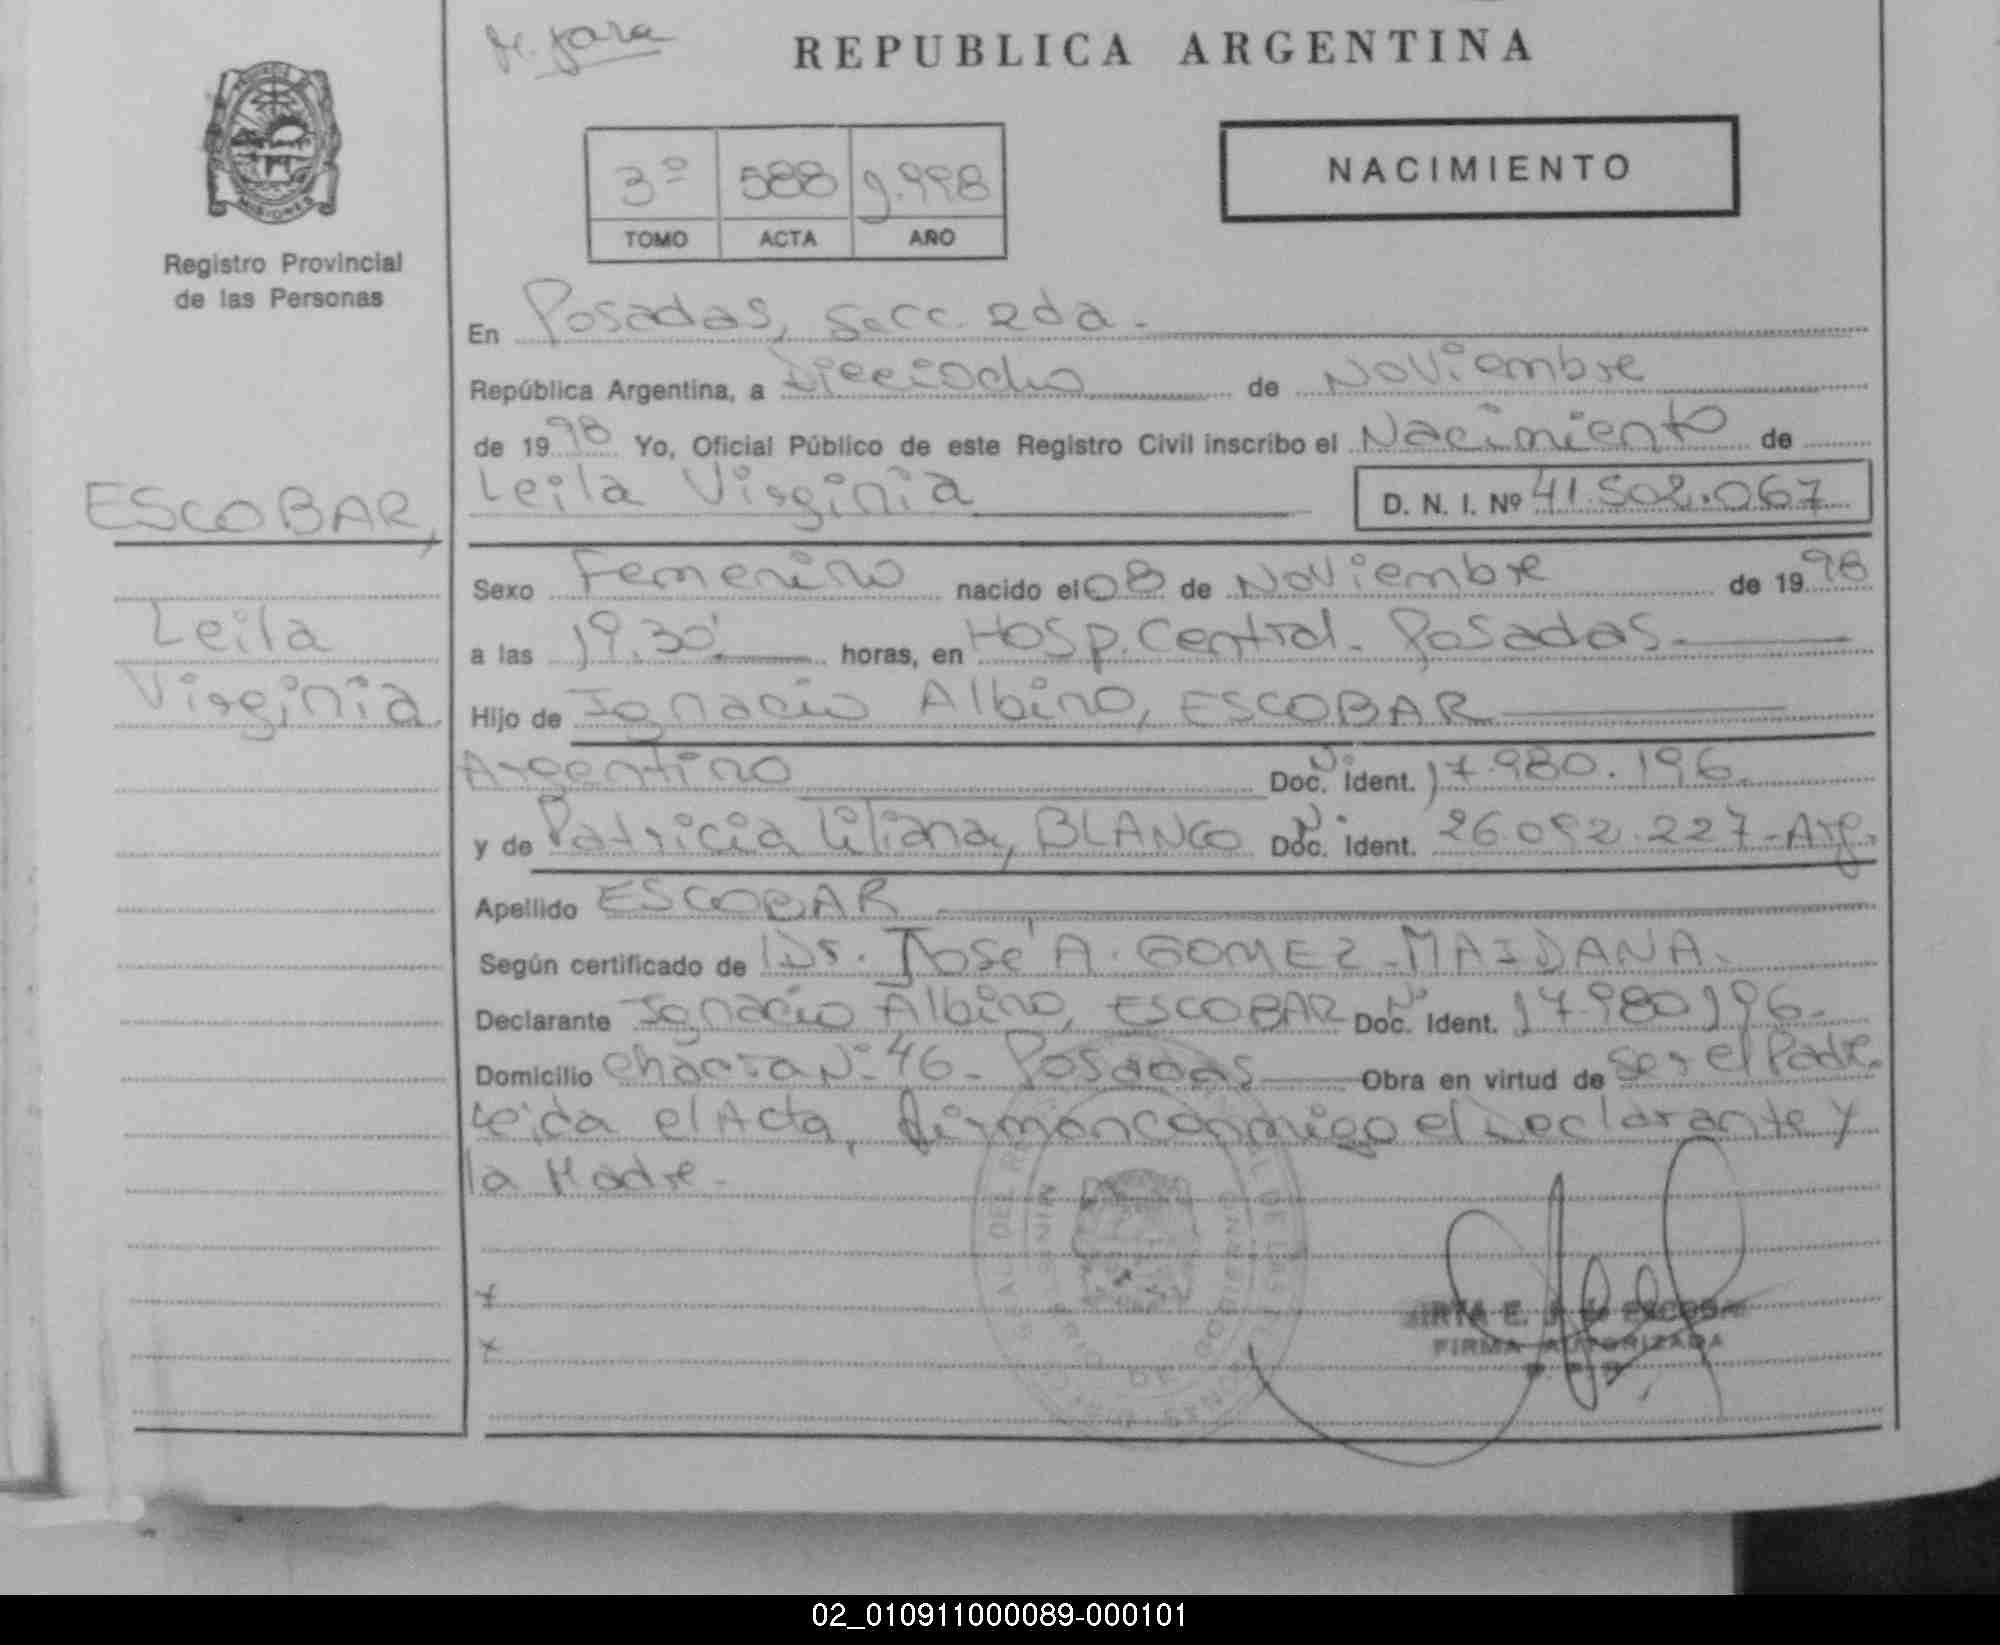 M. Jara
REPUBLICA ARGENTINA
MISIONES
Registro Provincial
de las Personas
3º 588 1.998
TOMO ACTA AÑO
NACIMIENTO
En Posadas, Secc. 2da.
República Argentina, a Dieciocho de Noviembre
de 1998 Yo, Oficial Público de este Registro Civil inscribo el Nacimiento de
Leila Virginia D. N. I. Nº 41.502.067
ESCOBAR,
Leila
Virginia
Sexo Femenino nacido el 08 de Noviembre de 1998
a las 19.30 horas, en Hosp. Central - Posadas
Hijo de Ignacio Albino, ESCOBAR
Argentino Doc. Nº Ident. 17.980.196
y de Patricia Liliana, BLANCO Doc. Nº Ident. 26.092.227-Arg.
Apellido ESCOBAR
Según certificado de Dr. José A. GOMEZ - MAIDANA.
Declarante Ignacio Albino, ESCOBAR Doc. Nº Ident. 17.980.196.
Domicilio Chacra Nº 46 - Posadas Obra en virtud de ser el Padre.
Leida el Acta, firman conmigo el Declarante y
la Madre.
x
x
FIRMA AUTORIZADA
02_010911000089-000101